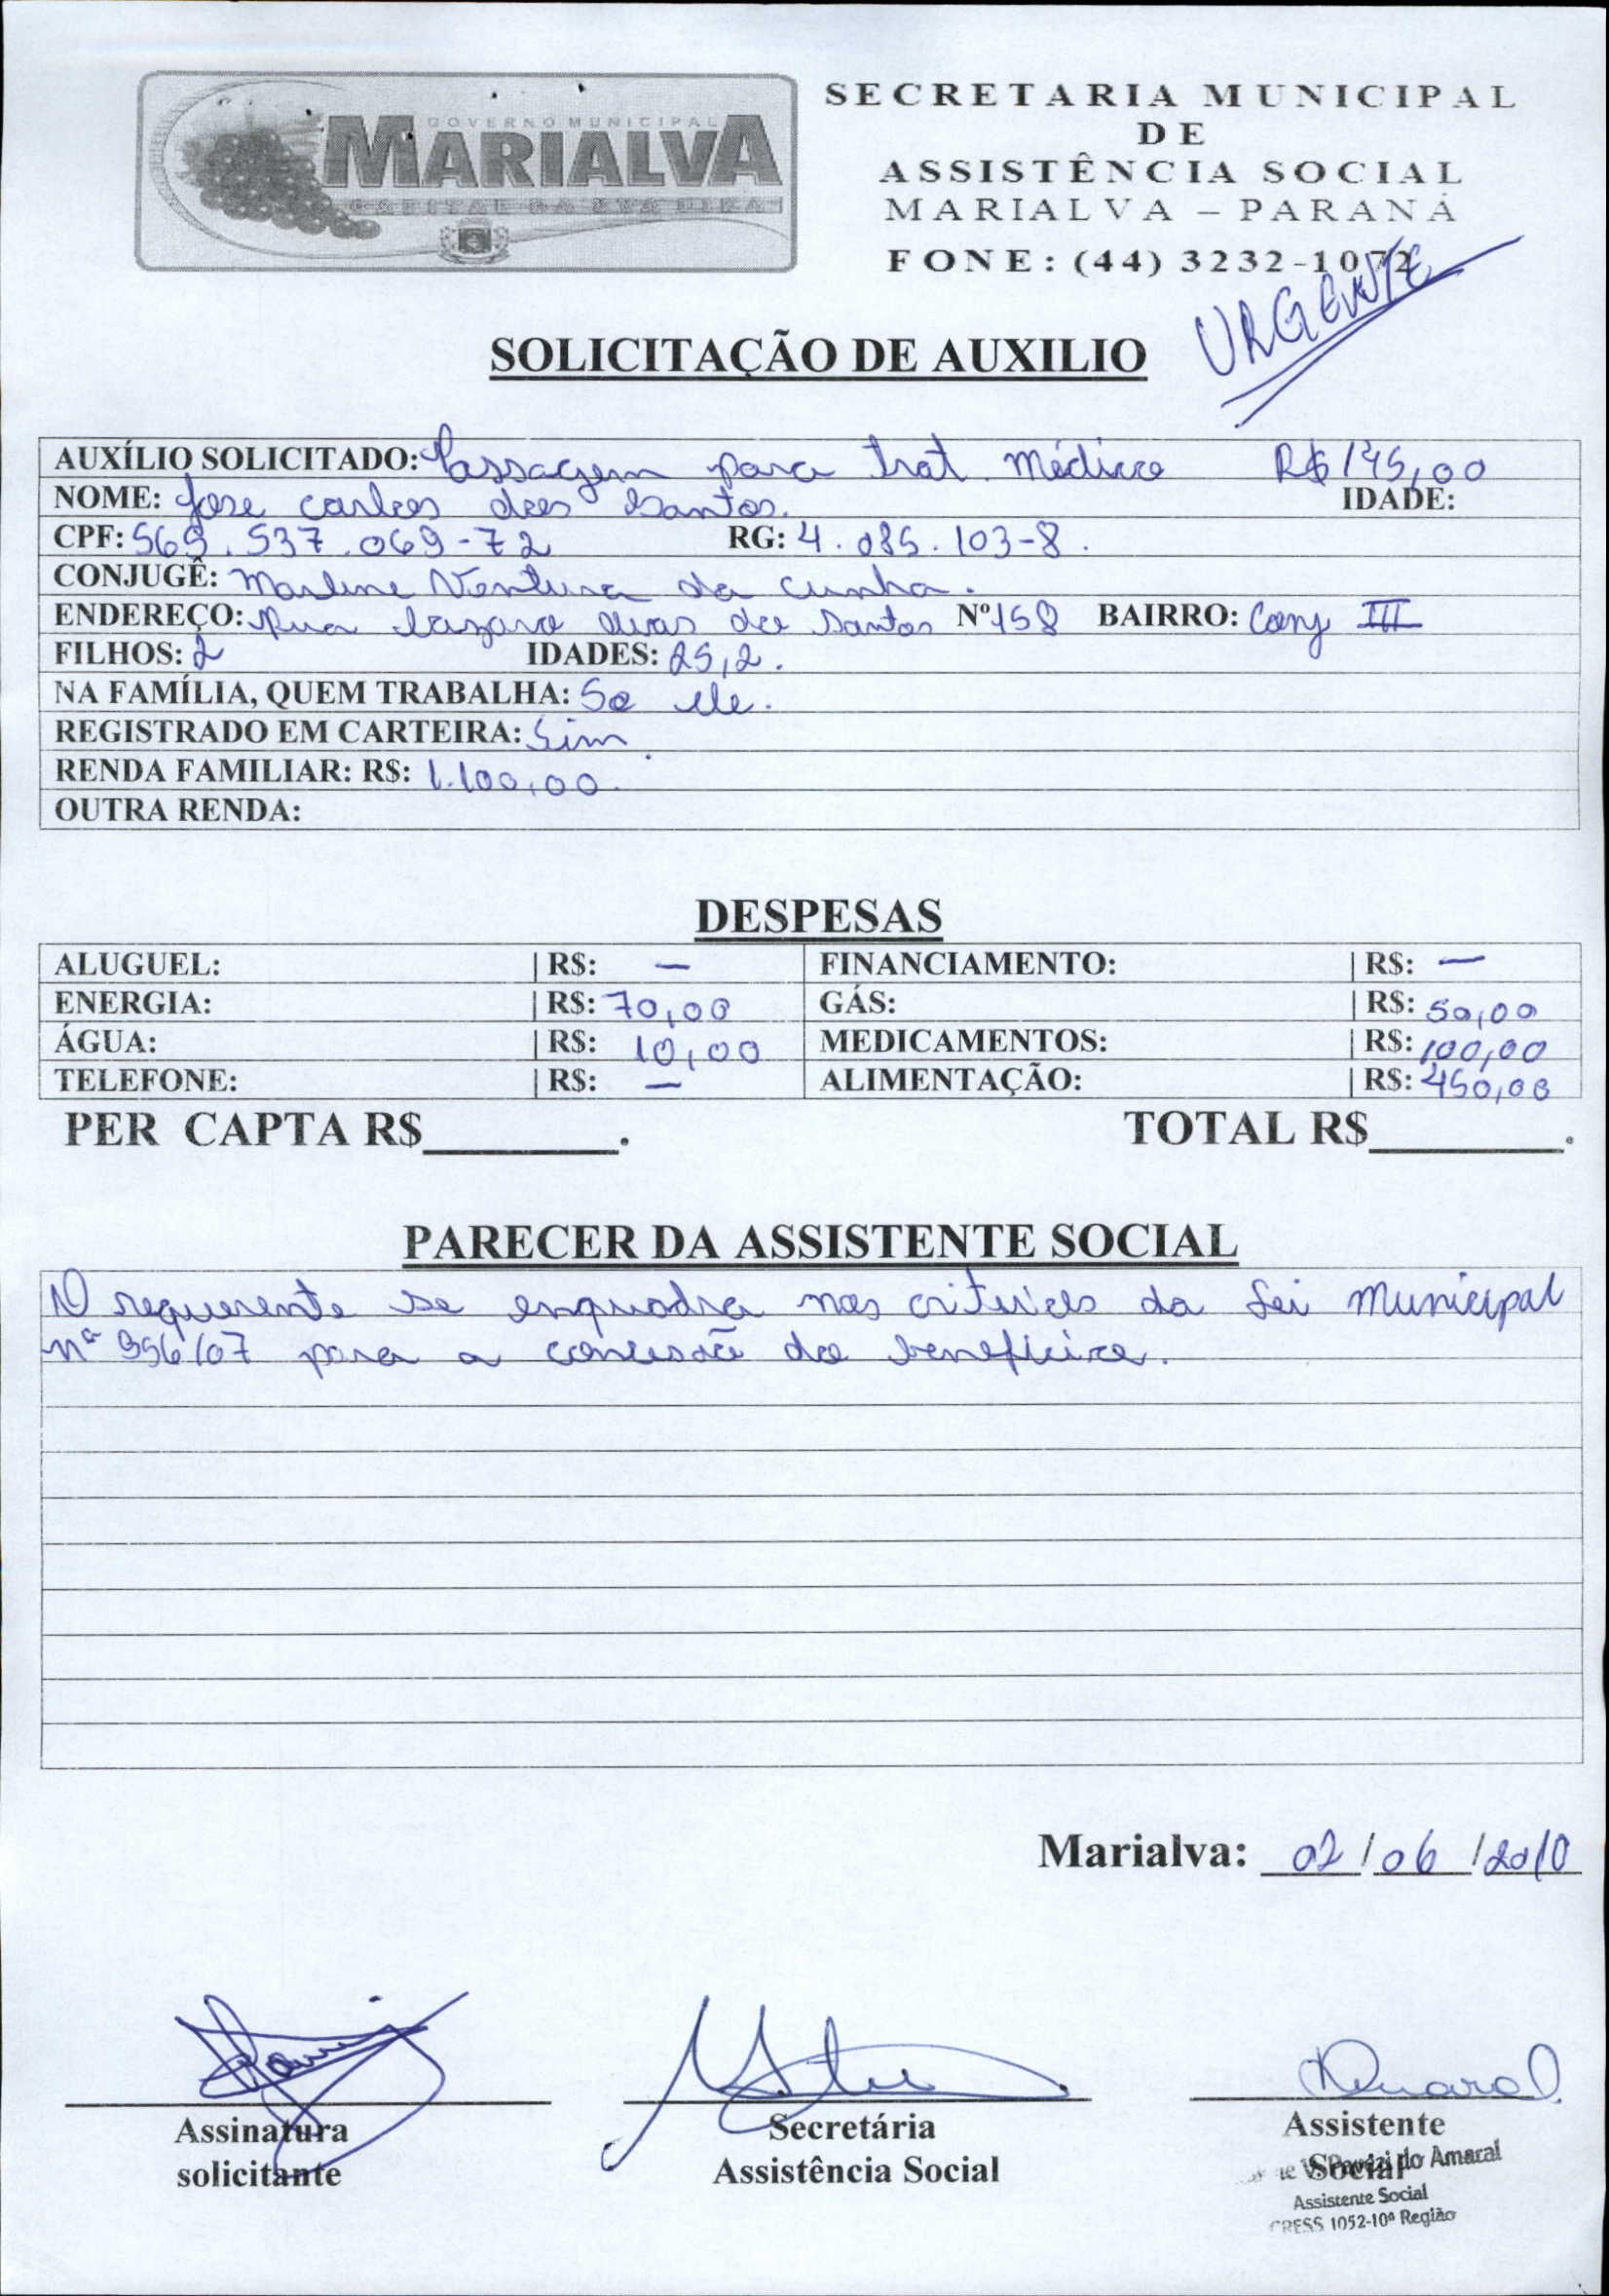 GOVERNO MUNICIPAL
MARIALVA
CAPITAL DA UVA FINA
SECRETARIA MUNICIPAL
DE
ASSISTÊNCIA SOCIAL
MARIALVA – PARANÁ
FONE: (44) 3232-1072
URGENTE
SOLICITAÇÃO DE AUXILIO
AUXÍLIO SOLICITADO: Passagem para trat. Médico R$ 145,00
NOME: Jose carlos dos Santos. IDADE:
CPF: 569.537.069-72 RG: 4.085.103-8.
CONJUGÊ: Marlene Ventura da Cunha.
ENDEREÇO: Rua Lazaro dos Santos Nº 158 BAIRRO: Conj III
FILHOS: 2 IDADES: 25, 2.
NA FAMÍLIA, QUEM TRABALHA: So ele.
REGISTRADO EM CARTEIRA: Sim.
RENDA FAMILIAR: R$: 1.100,00.
OUTRA RENDA:
DESPESAS
ALUGUEL: | R$: — FINANCIAMENTO: | R$: —
ENERGIA: | R$: 70,00 GÁS: | R$: 50,00
ÁGUA: | R$: 10,00 MEDICAMENTOS: | R$: 100,00
TELEFONE: | R$: — ALIMENTAÇÃO: | R$: 450,00
PER CAPTA R$________. TOTAL R$________.
PARECER DA ASSISTENTE SOCIAL
O requerente se enquadra nos criterios da Lei Municipal
nº 996/07 para a concessão do beneficio.
Marialva: 02/06/2010
Assinatura
solicitante
Secretária
Assistência Social
Assistente
Social
do Amaral
Assistente Social
CRESS 1052-10ª Região